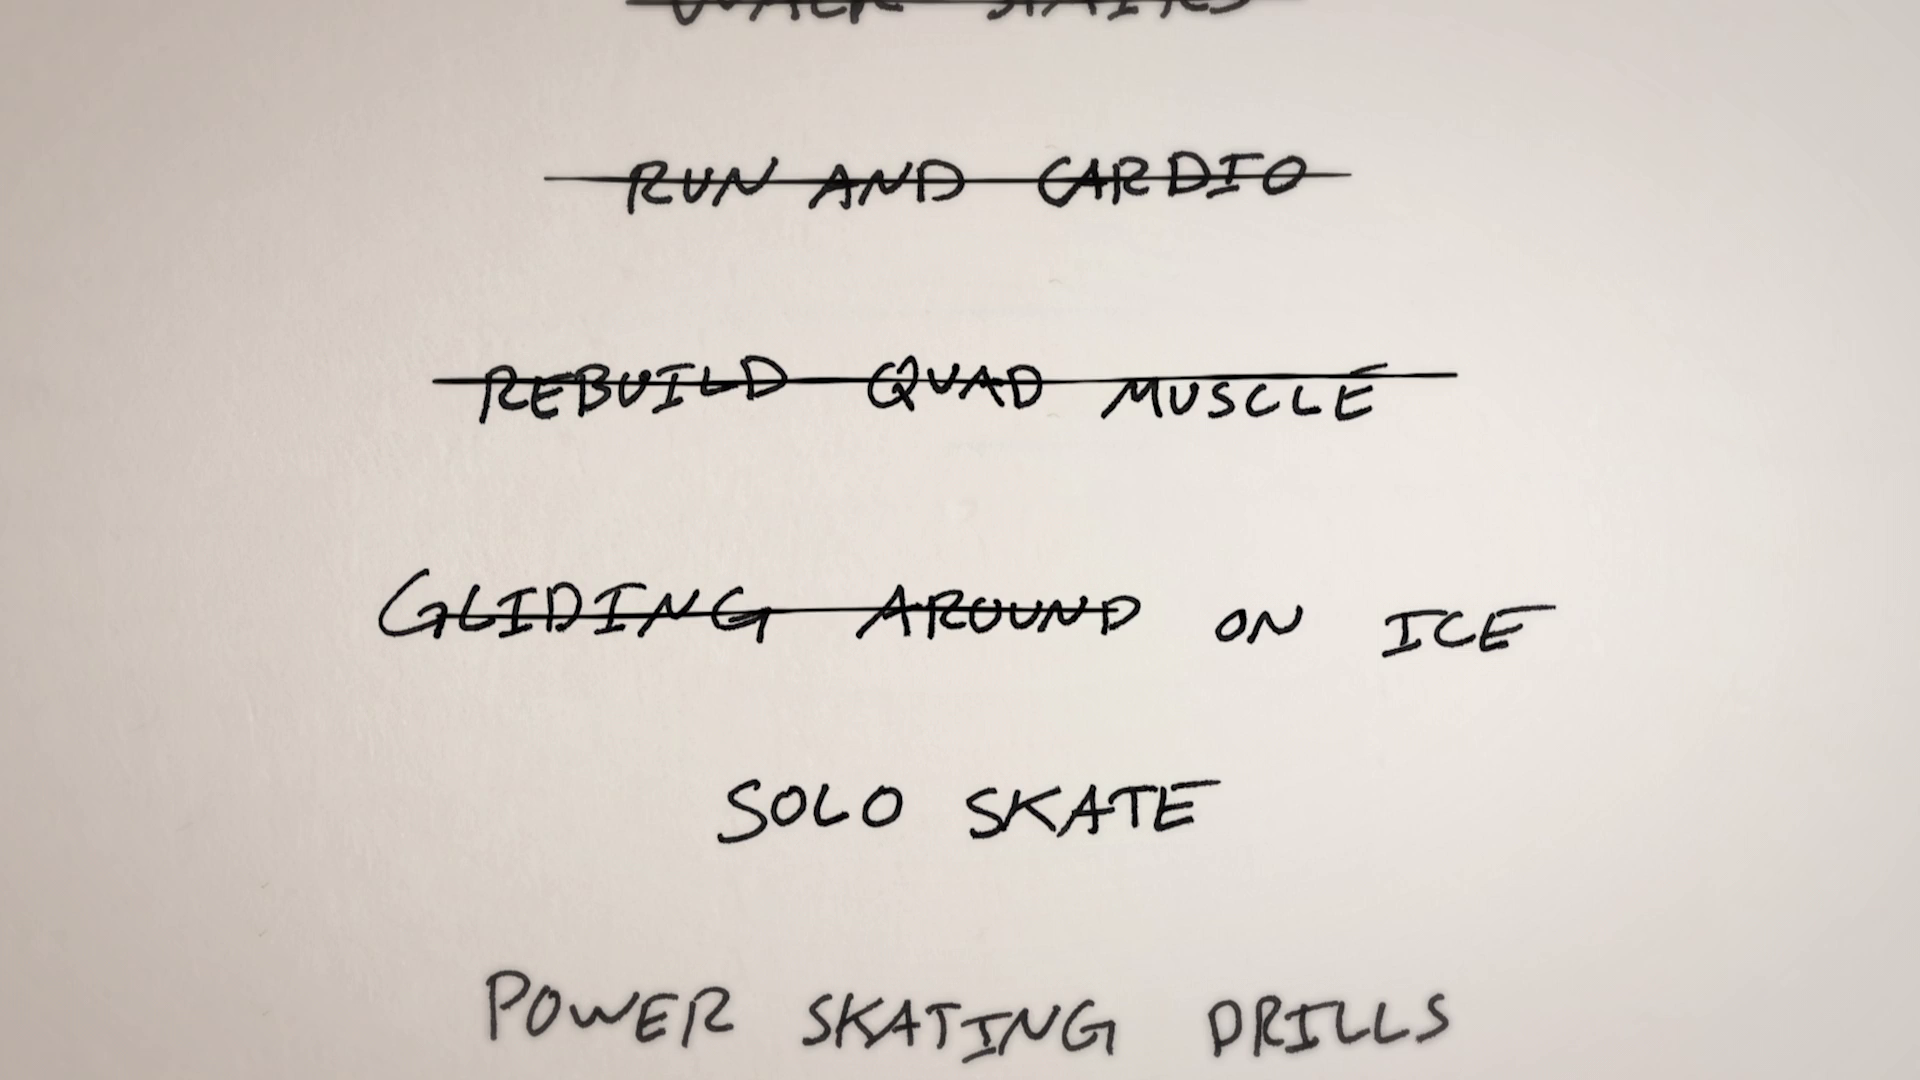 RUN AND CARDIO
REBUILD QUAD MUSCLE
GLIDING AROUND ON ICE
SOLO SKATE
POWER SKATING DRILLS